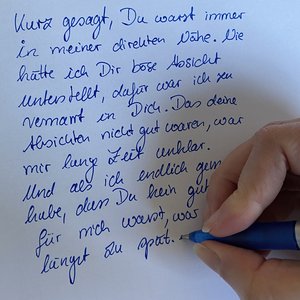 Kurz gesagt, Du warst immer
in meiner direkten Nähe. Nie
hätte ich Dir böse Absicht
unterstellt, dafür war ich zu
vernarrt in Dich. Das deine
Absichten nicht gut waren, war
mir lang Zeit unklar.
Und als ich endlich
habe, dass Du kein gut
für mich warst, war
längst zu spät.